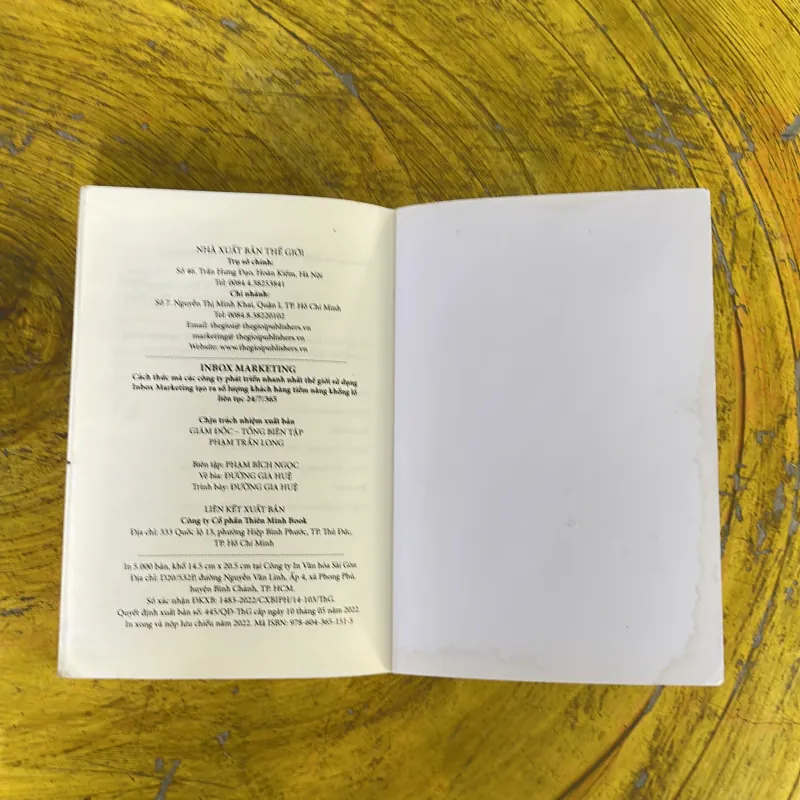 NHÀ XUẤT BẢN THẾ GIỚI
Trụ sở chính:
Số 46. Trần Hưng Đạo, Hoàn Kiếm, Hà Nội
Tel: 0084.4.38253841
Chi nhánh:
Số 7. Nguyễn Thị Minh Khai, Quận I, TP. Hồ Chí Minh
Tel: 0084.8.38220102
Email: thegioi@thegioipublishers.vn
marketing@thegioipublishers.vn
Website: www.thegioipublishers.vn
INBOX MARKETING
Cách thức mà các công ty phát triển nhanh nhất thế giới sử dụng
Inbox Marketing tạo ra số lượng khách hàng tiềm năng khổng lồ
liên tục 24/7/365
Chịu trách nhiệm xuất bản
GIÁM ĐỐC – TỔNG BIÊN TẬP
PHẠM TRẦN LONG
Biên tập: PHẠM BÍCH NGỌC
Vẽ bìa: ĐƯỜNG GIA HUỆ
Trình bày: ĐƯỜNG GIA HUỆ
LIÊN KẾT XUẤT BẢN
Công ty Cổ phần Thiên Minh Book
Địa chỉ: 333 Quốc lộ 13, phường Hiệp Bình Phước, TP. Thủ Đức,
TP. Hồ Chí Minh
In 5.000 bản, khổ 14.5 cm x 20.5 cm tại Công ty In Văn hóa Sài Gòn
Địa chỉ: D20/532P, đường Nguyễn Văn Linh, Ấp 4, xã Phong Phú,
huyện Bình Chánh, TP. HCM.
Số xác nhận ĐKXB: 1483-2022/CXBIPH/14-103/ThG.
Quyết định xuất bản số: 445/QĐ-ThG cấp ngày 10 tháng 05 năm 2022.
In xong và nộp lưu chiểu năm 2022. Mã ISBN: 978-604-365-151-5